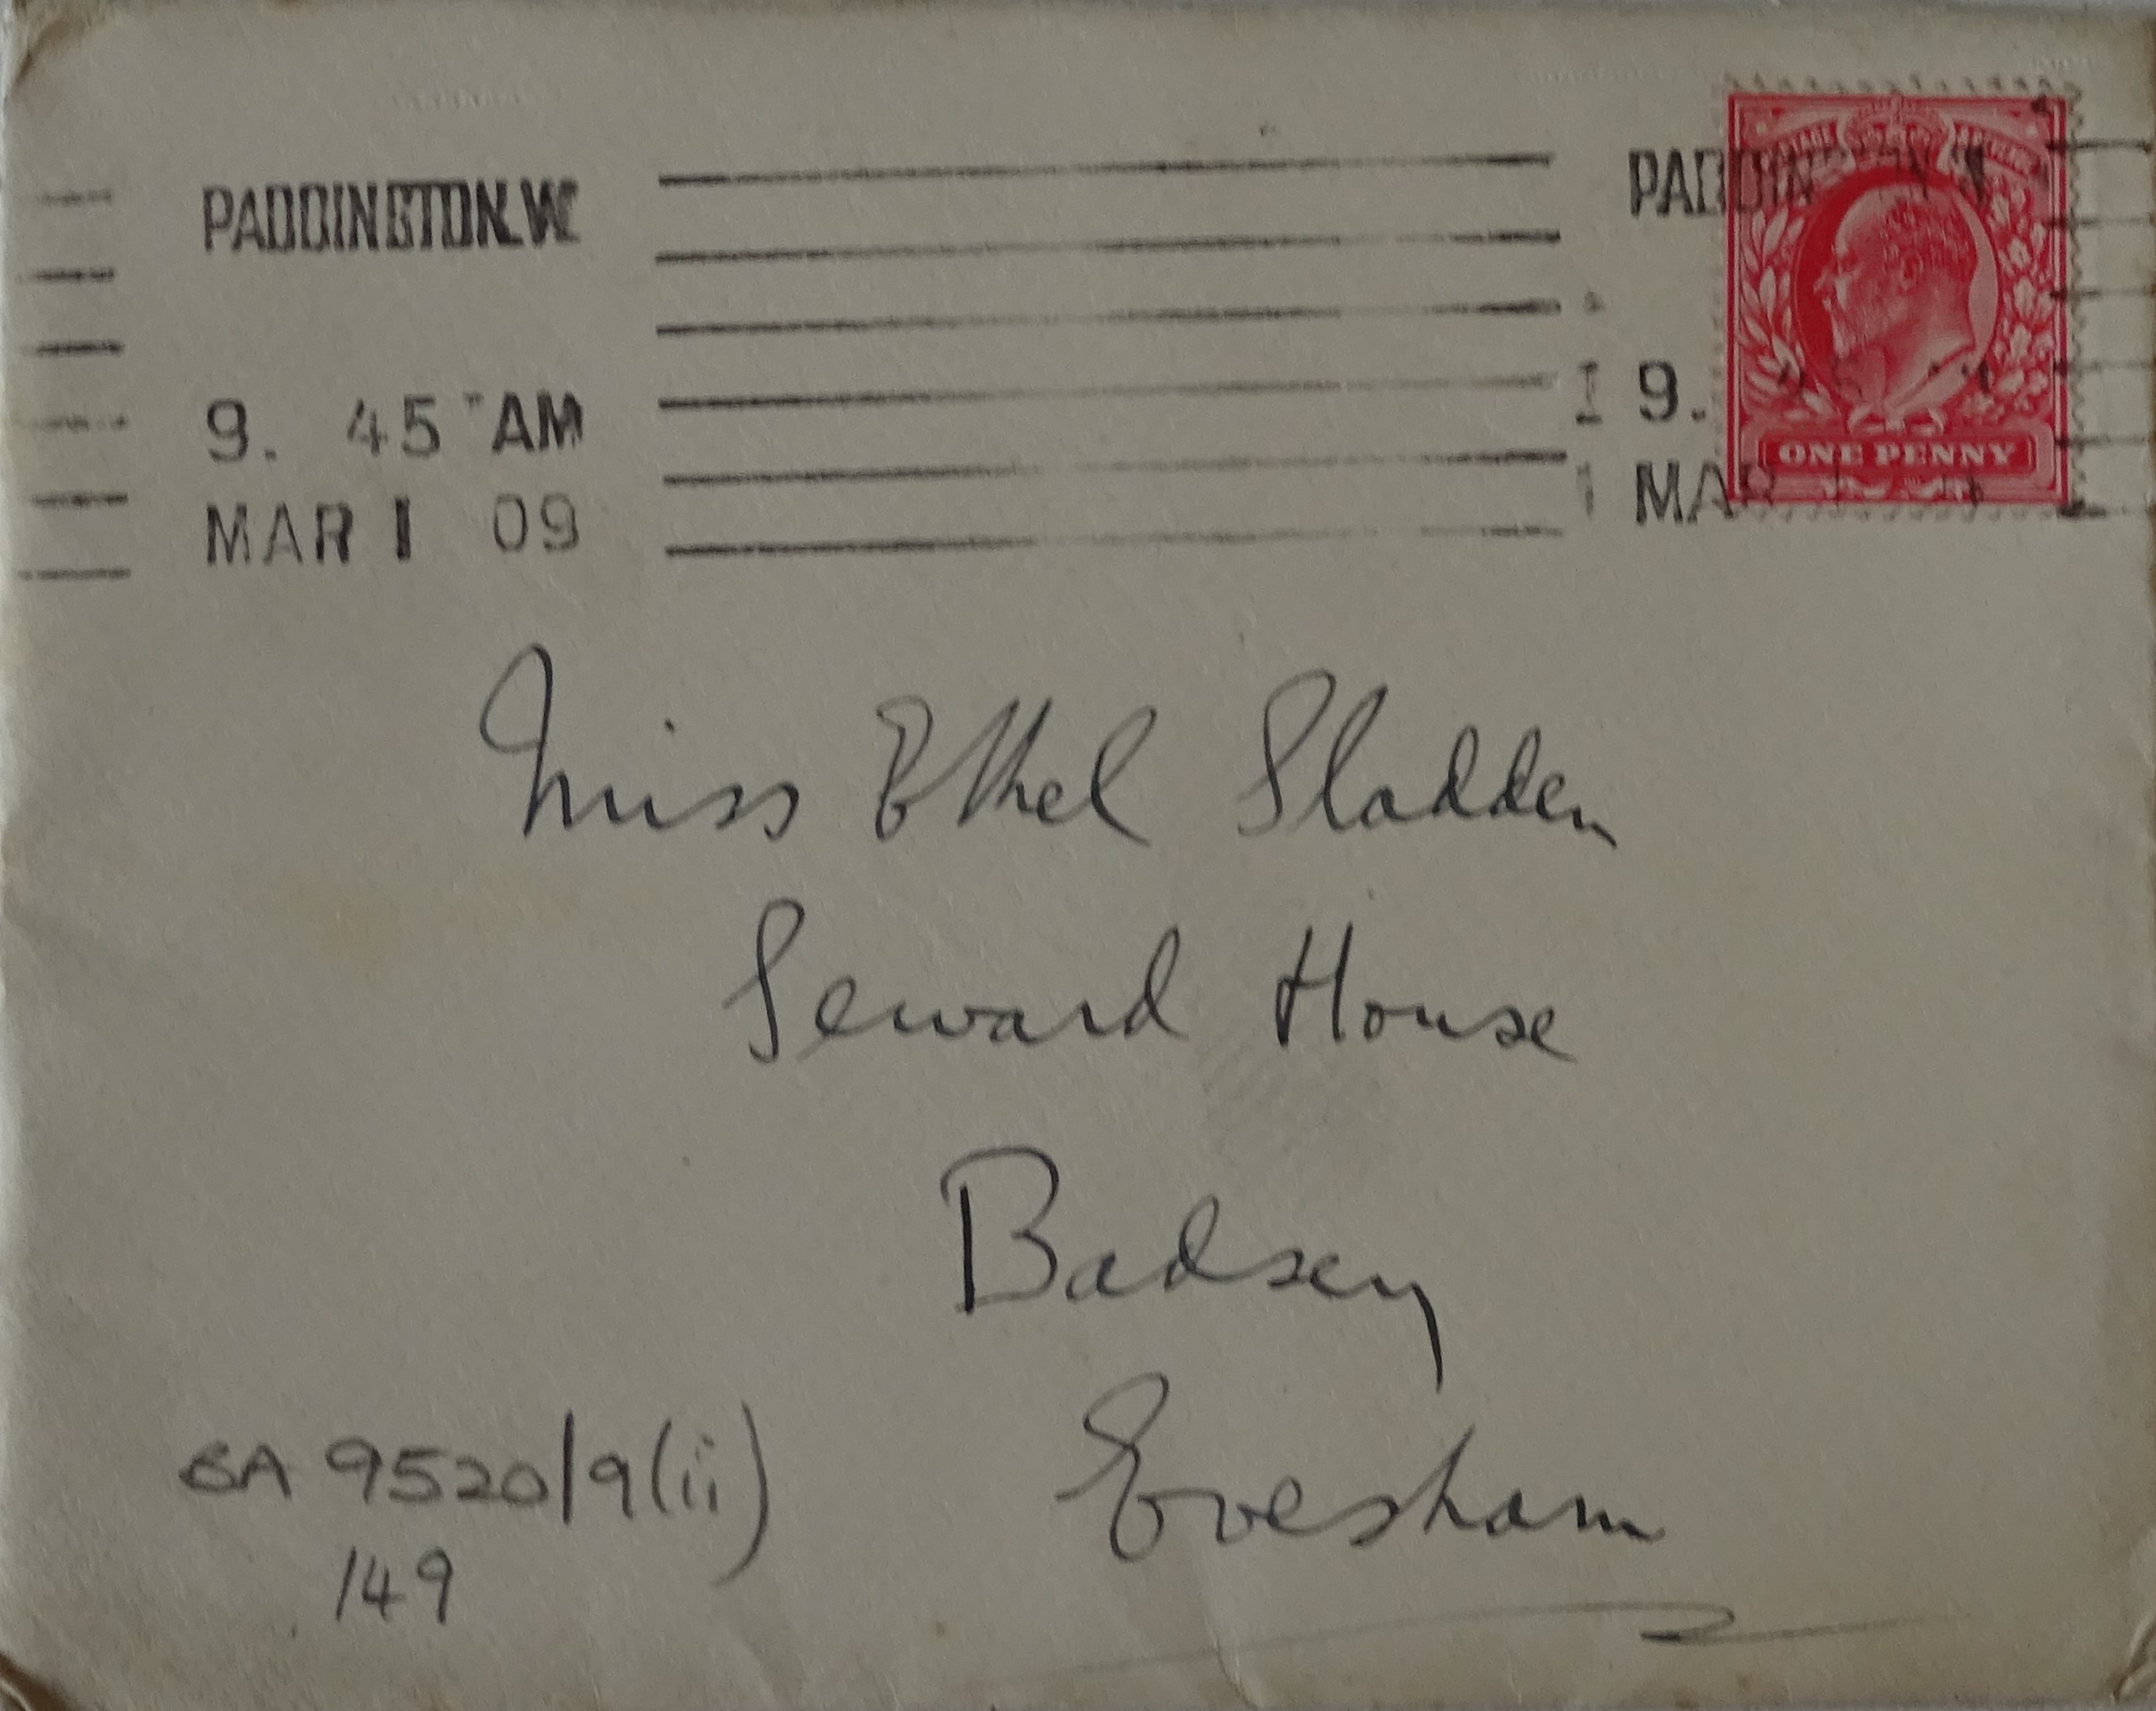 PADDINGTON.W.
9. 45 AM
MAR 1 09
9.
POSTAGE REVENUE
ONE PENNY
Miss Ethel Sladden
Seward House
Badsey
Evesham
BA 9520/9(ii)
/49